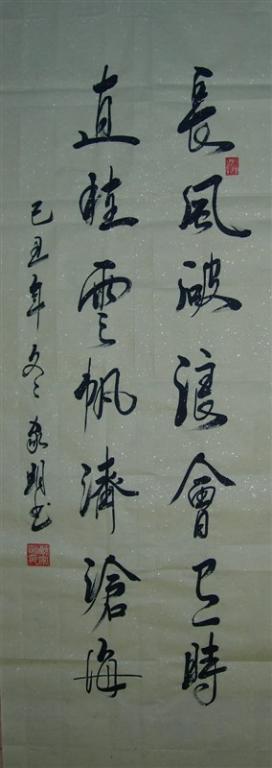 長風破浪會有時
直挂雲帆濟滄海
己丑年冬家明书